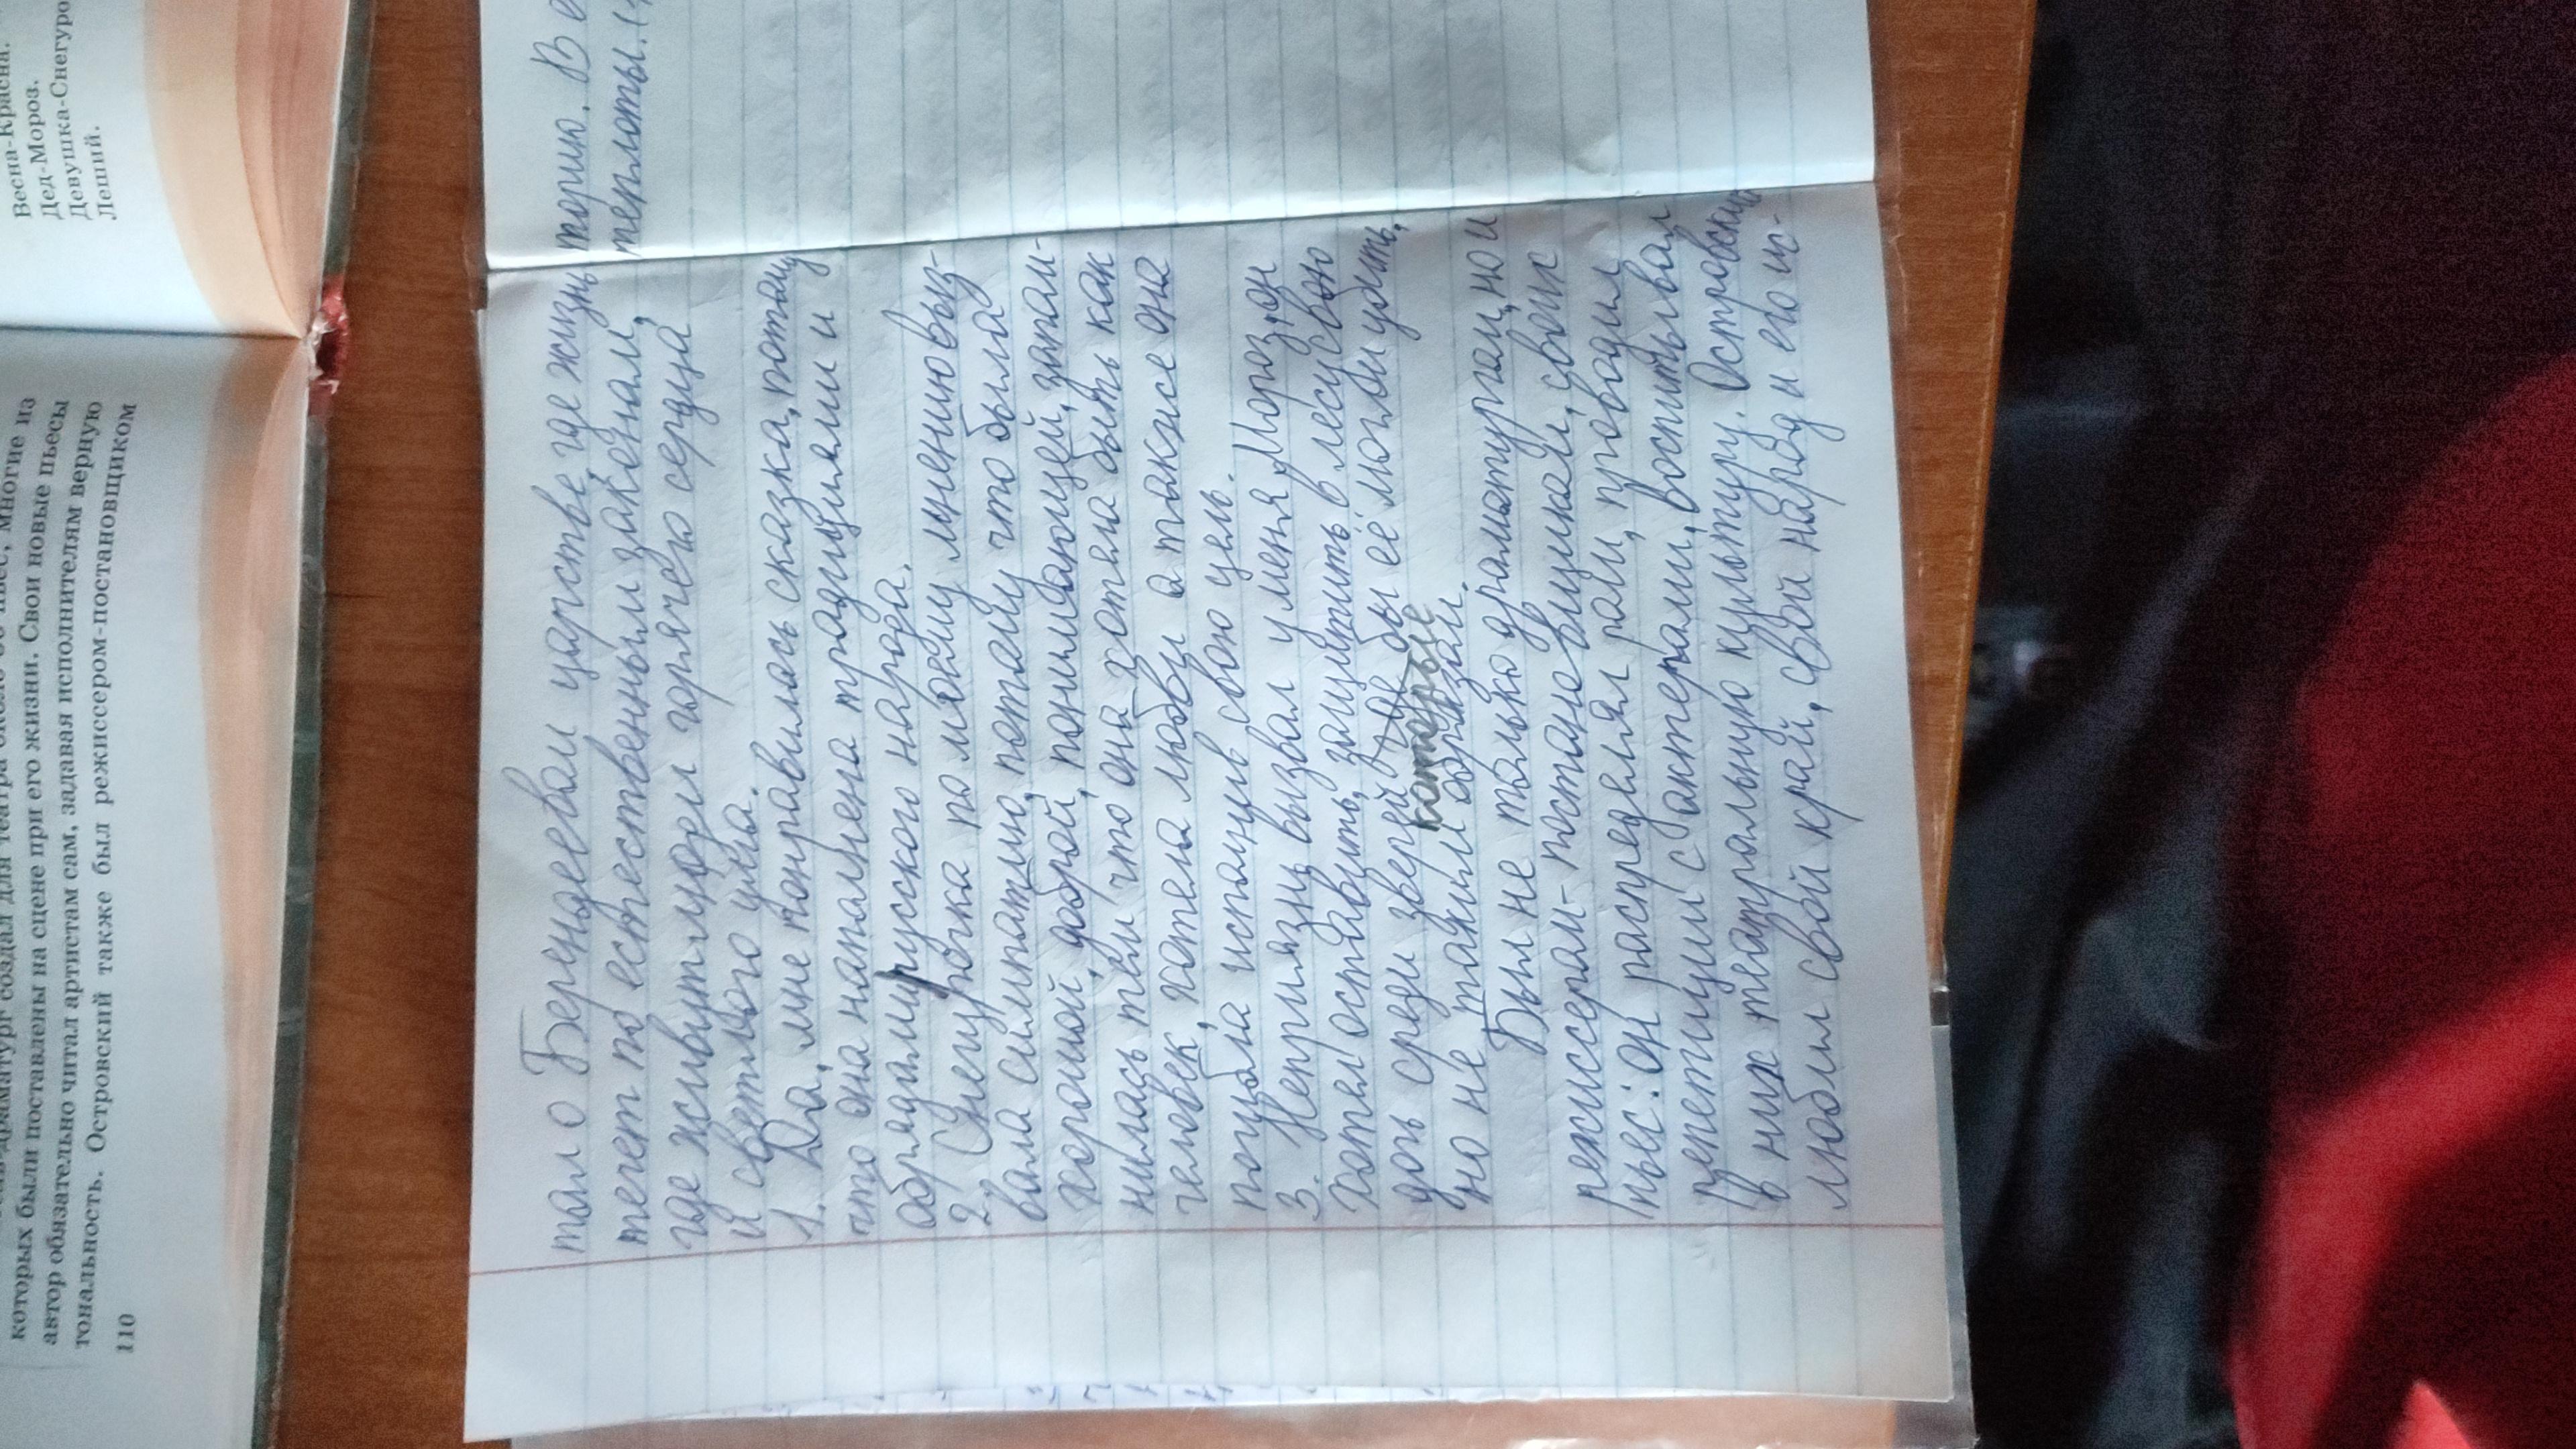 которых были поставлены на сцене при его жизни. Свои новые пьесы
автор обязательно читал артистам сам, задавая исполнителям верную
тональность. Островский также был режиссером-постановщиком
110
Весна-Красна.
Дед-Мороз.
Девушка-Снегуро
Леший.
тало о Берендеевом царстве где жизнь
течет по естественным законам,
где живит люди горячего сердца
и светлого ума.
1. Да, мне понравилась сказка, потому
что она наполнена традициями и
обрядами русского народа.
2 Снегурочка по моему мнению выз-
вала симпатию, потому что была
хорошой, доброй, понимающей, запом-
нилась тем что она хотела быть как
человек, хотела любви а также она
погубла исполнив свою цель.
3. Неприязнь вызвал у меня Мороз, он
хотел оставить, защитить в лесу свою
дочь среди зверей бы её могли убить,
которые
но не такие
Был не только драматургом, но и
режиссерам-постановщикам, своих
пьес: он распределял роли, проводил
репетиции с актерами, воспитывал
в них театральную культуру. Островский
любил свой край, свой народ и его ис-
торию. В
теплоты.